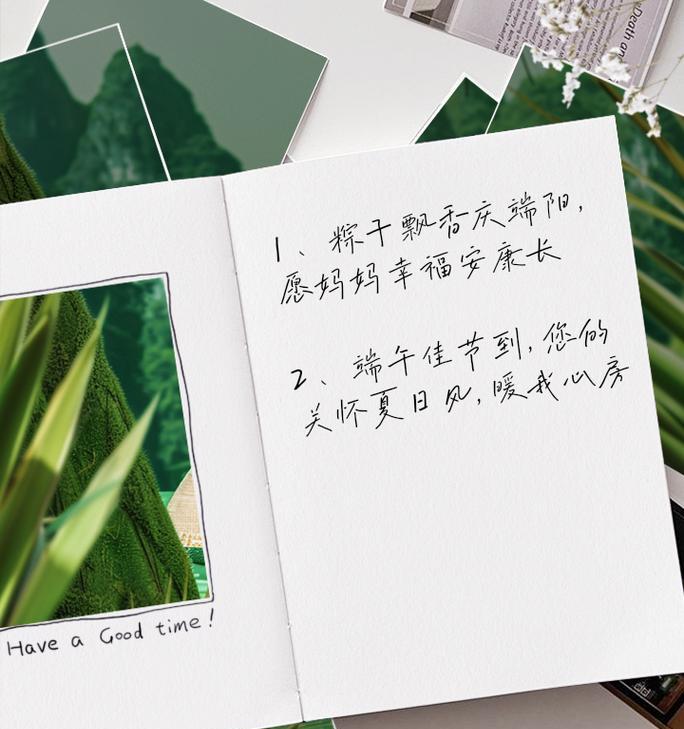 1、粽子飘香庆端阳,
愿妈妈幸福安康长
2、端午佳节到,您的
关怀夏日风,暖我心房
Have a Good time!
Death